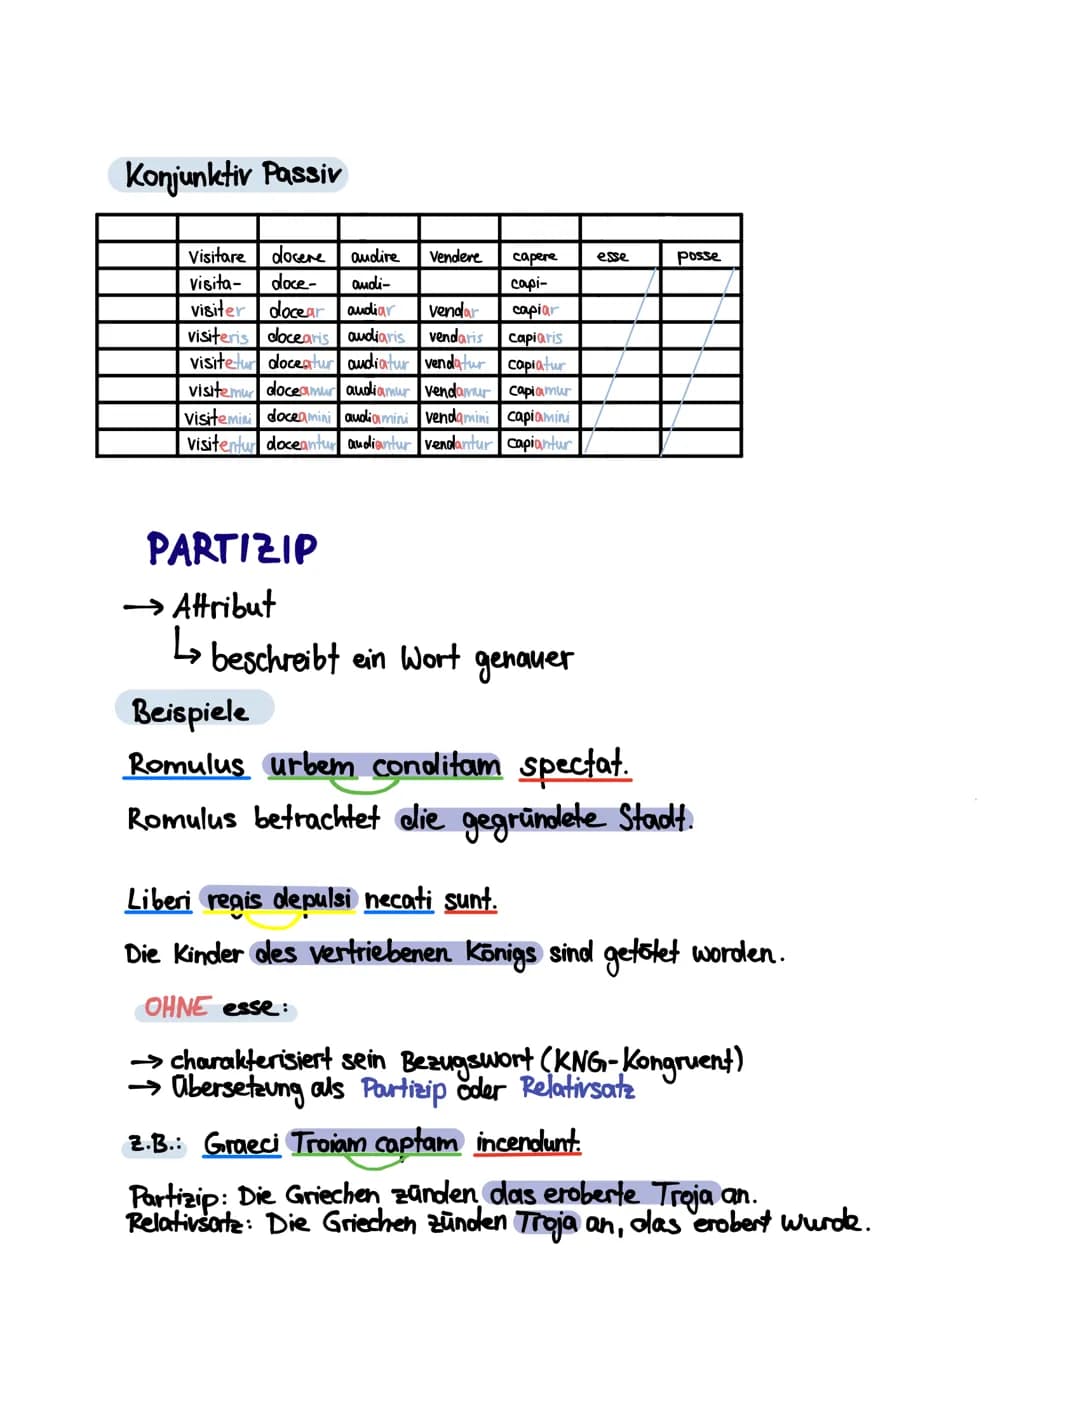 Konjunktiv Passiv
Visitare docere audire Vendere capere esse posse
Visita- doce- audi- capi-
visiter docear audiar vendar capiar
visiteris docearis audiaris vendaris capiaris
visitetur doceatur audiatur vendatur capiatur
visitemur doceamur audiamur vendamur capiamur
visitemini doceamini audiamini vendamini capiamini
visitentur doceantur audiantur vendantur capiantur
PARTIZIP
→ Attribut
↳ beschreibt ein Wort genauer
Beispiele
Romulus urbem conditam spectat.
Romulus betrachtet die gegründete Stadt.
Liberi regis depulsi necati sunt.
Die Kinder des vertriebenen Königs sind getötet worden.
OHNE esse:
→ charakterisiert sein Bezugswort (KNG-Kongruent)
→ Übersetzung als Partizip oder Relativsatz
z.B.: Graeci Troiam captam incendunt.
Partizip: Die Griechen zünden das eroberte Troja an.
Relativsatz: Die Griechen zünden Troja an, das erobert wurde.